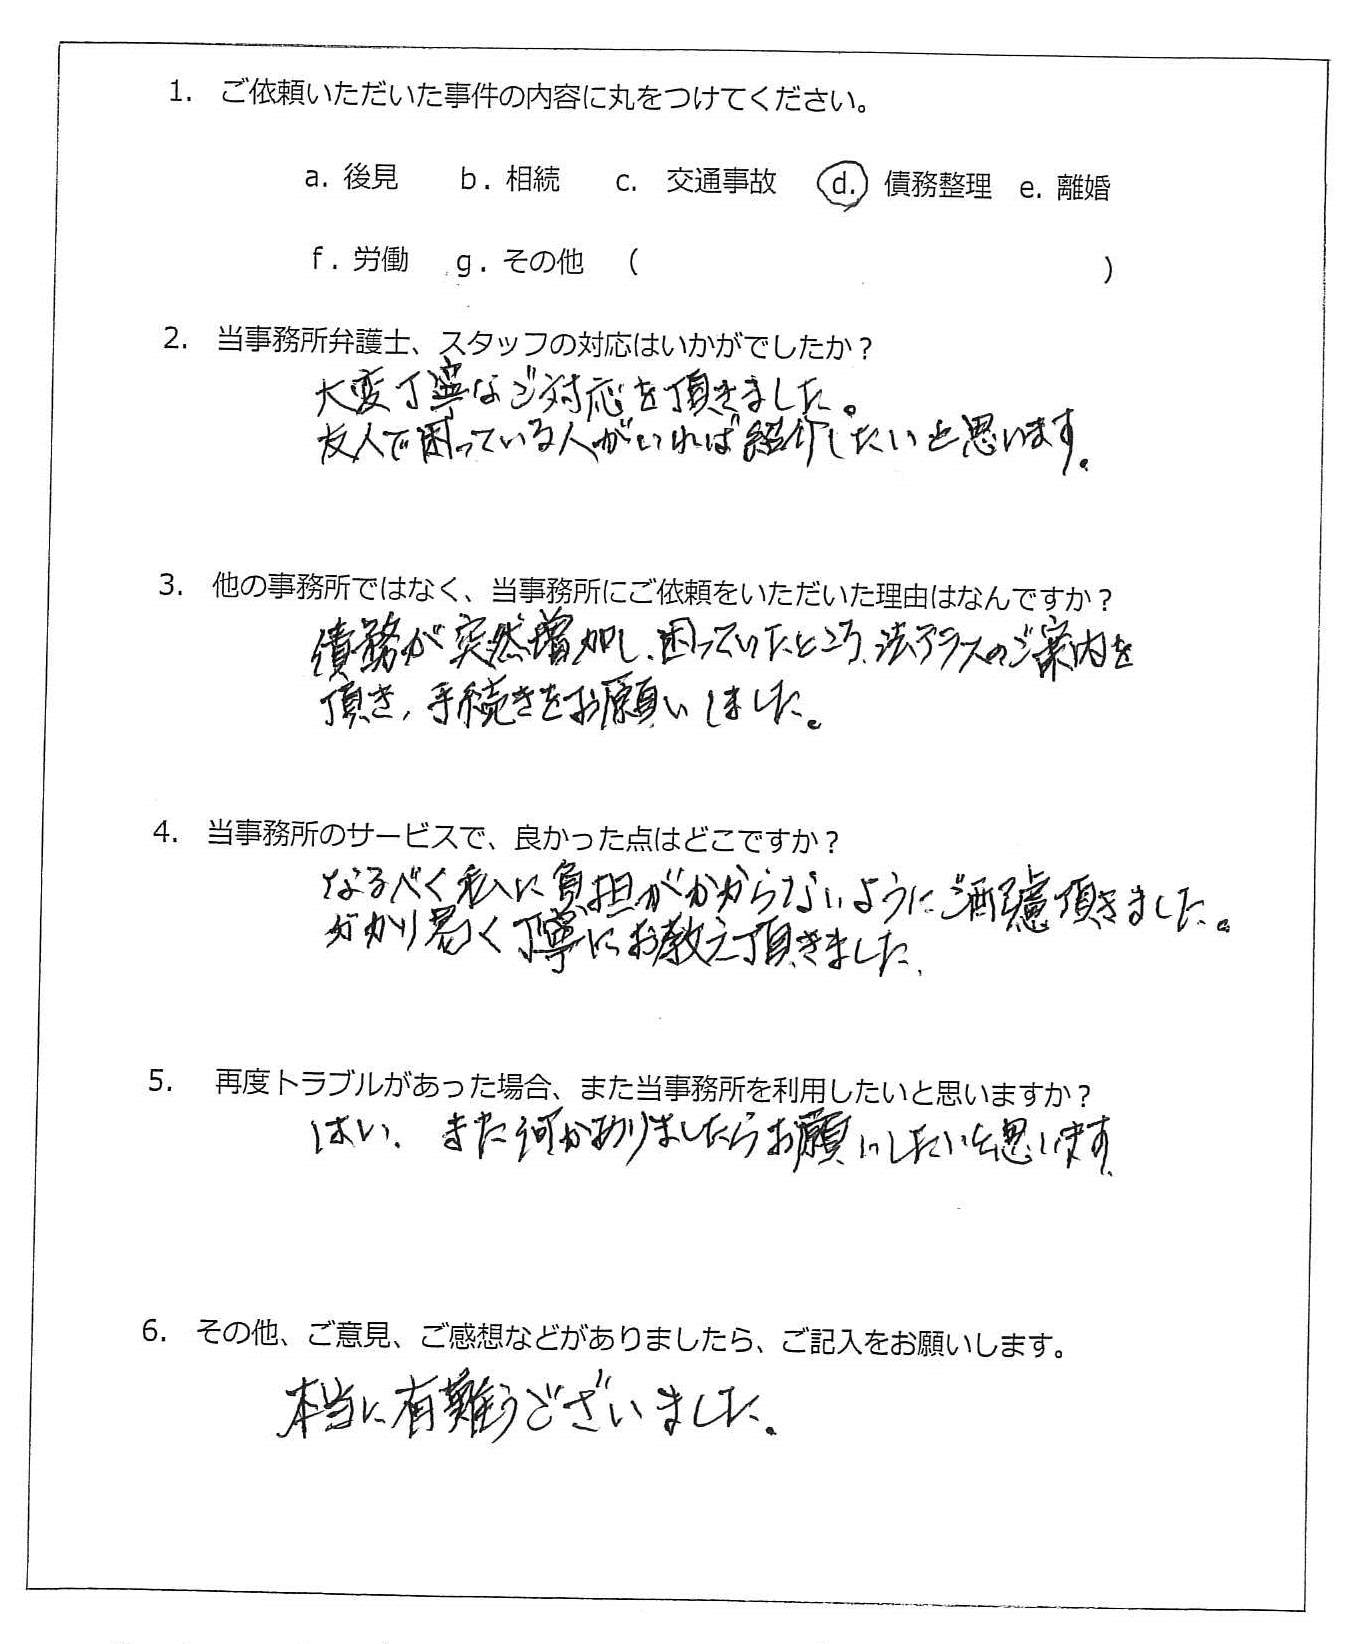 1. ご依頼いただいた事件の内容に丸をつけてください。
a. 後見 b. 相続 c. 交通事故 d. 債務整理 e. 離婚
f. 労働 g. その他 ( )
2. 当事務所弁護士、スタッフの対応はいかがでしたか？
大変丁寧なご対応を頂きました。
友人で困っている人がいれば紹介したいと思います。
3. 他の事務所ではなく、当事務所にご依頼をいただいた理由はなんですか？
債務が突然増加し、困っていたところ、法テラスのご案内を
頂き、手続きをお願いしました。
4. 当事務所のサービスで、良かった点はどこですか？
なるべく私に負担がかからないようにご配慮頂きました。
分かり易く丁寧にお教え頂きました。
5. 再度トラブルがあった場合、また当事務所を利用したいと思いますか？
はい、また何かありましたらお願いしたいと思います。
6. その他、ご意見、ご感想などがありましたら、ご記入をお願いします。
本当に有難うございました。